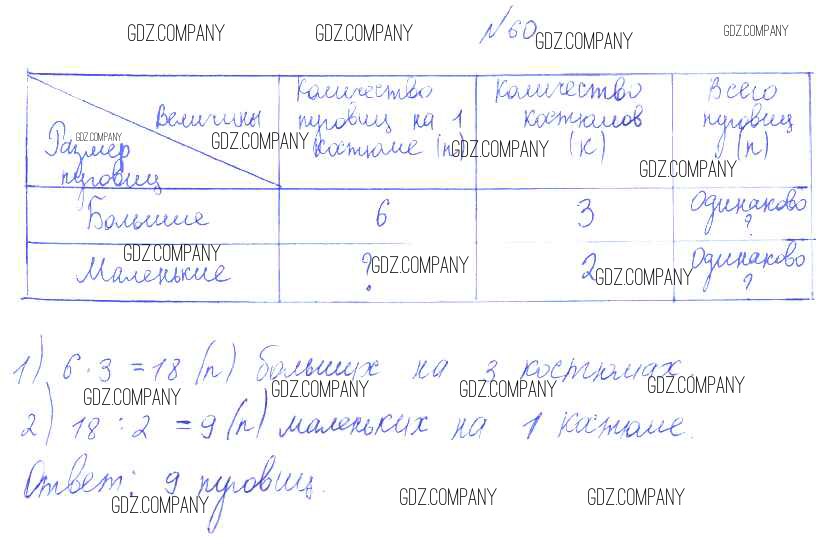 GDZ.COMPANY GDZ.COMPANY №60 GDZ.COMPANY GDZ.COMPANY
Величины
Размер пуговиц
GDZ.COMPANY
Количество
пуговиц на 1
костюме (п)
GDZ.COMPANY
Количество
костюмов
(к)
GDZ.COMPANY
Всего
пуговиц
(п)
GDZ.COMPANY
Большие 6 3 Одинаково ?
GDZ.COMPANY GDZ.COMPANY GDZ.COMPANY
Маленькие ? 2 Одинаково ?
1) 6 · 3 = 18 (п) больших на 3 костюмах.
GDZ.COMPANY GDZ.COMPANY GDZ.COMPANY GDZ.COMPANY
2) 18 : 2 = 9 (п) маленьких на 1 костюме.
Ответ: 9 пуговиц.
GDZ.COMPANY GDZ.COMPANY GDZ.COMPANY